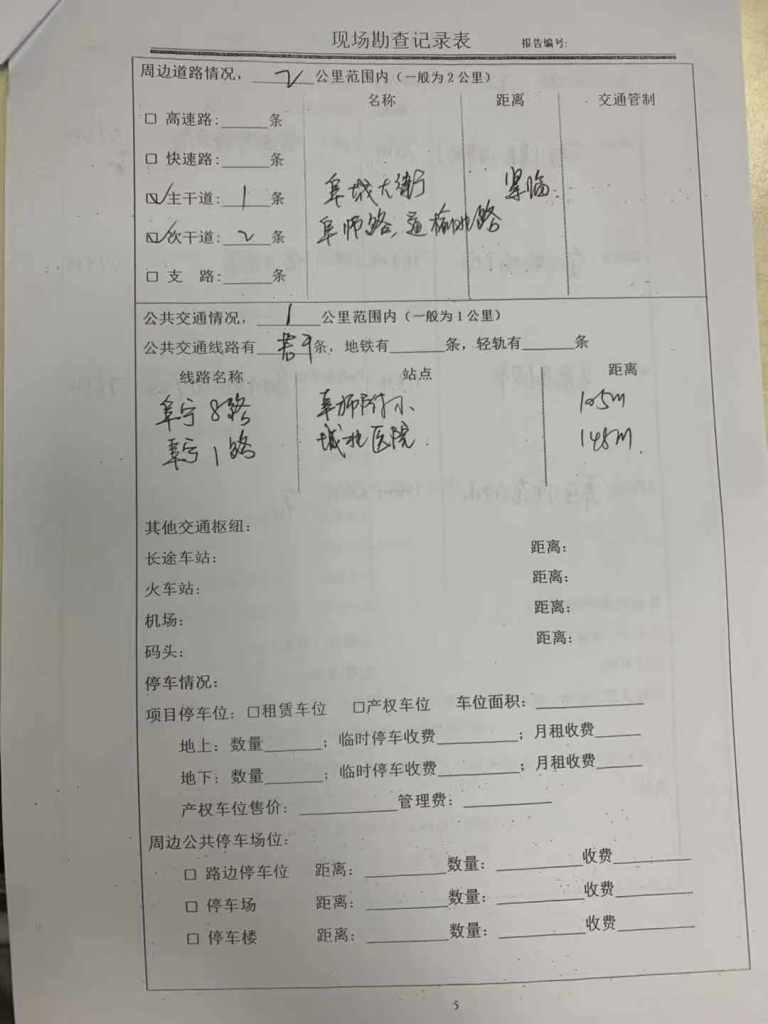 现场勘查记录表 报告编号:
周边道路情况，2公里范围内（一般为2公里）
名称 距离 交通管制
□ 高速路:______条
□ 快速路:______条
☑ 主干道: 1 条 阜城大街 紧临.
☑ 次干道: 2 条 阜师路、通榆北路
□ 支 路:______条
公共交通情况，1公里范围内（一般为1公里）
公共交通线路有 若干 条，地铁有______条，轻轨有______条
线路名称 站点 距离
阜宁8路 阜师附小 105m
阜宁1路 城北医院. 145m.
其他交通枢纽:
长途车站: 距离:
火车站: 距离:
机场: 距离:
码头: 距离:
停车情况:
项目停车位: □租赁车位 □产权车位 车位面积:______
地上: 数量______; 临时停车收费______; 月租收费______
地下: 数量______; 临时停车收费______; 月租收费______
产权车位售价: ______管理费: ______
周边公共停车场位:
□ 路边停车位 距离: ______数量: ______收费______
□ 停车场 距离: ______数量: ______收费______
□ 停车楼 距离: ______数量: ______收费______
5